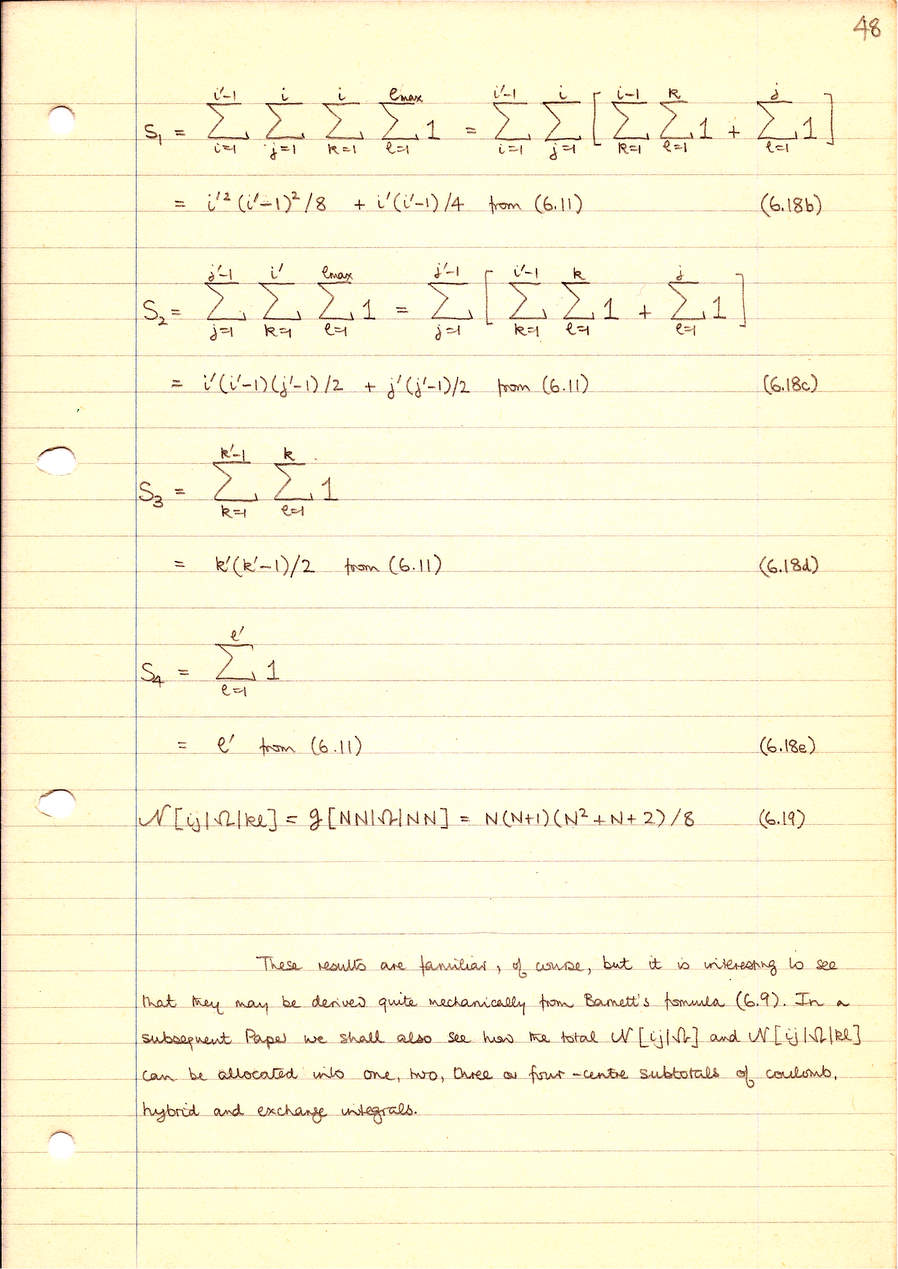 48
S₁ = ∑_{i=1}^{i′−1} ∑_{j=1}^{i} ∑_{k=1}^{i} ∑_{ℓ=1}^{ℓmax} 1 = ∑_{i=1}^{i′−1} ∑_{j=1}^{i} [ ∑_{k=1}^{i−1} ∑_{ℓ=1}^{k} 1 + ∑_{ℓ=1}^{j} 1 ]
= i′²(i′−1)²/8 + i′(i′−1)/4 from (6.11) (6.18b)
S₂ = ∑_{j=1}^{j′−1} ∑_{k=1}^{i′} ∑_{ℓ=1}^{ℓmax} 1 = ∑_{j=1}^{j′−1} [ ∑_{k=1}^{i′−1} ∑_{ℓ=1}^{k} 1 + ∑_{ℓ=1}^{j} 1 ]
= i′(i′−1)(j′−1)/2 + j′(j′−1)/2 from (6.11) (6.18c)
S₃ = ∑_{k=1}^{k′−1} ∑_{ℓ=1}^{k} 1
= k′(k′−1)/2 from (6.11) (6.18d)
S₄ = ∑_{ℓ=1}^{ℓ′} 1
= ℓ′ from (6.11) (6.18e)
𝒩[ij|Ω|kℓ] = g[NN|Ω|NN] = N(N+1)(N²+N+2)/8 (6.19)
These results are familiar, of course, but it is interesting to see
that they may be derived quite mechanically from Barnett's formula (6.9). In a
subsequent Paper we shall also see how the total 𝒩[ij|Ω] and 𝒩[ij|Ω|kℓ]
can be allocated into one, two, three or four-centre subtotals of coulomb,
hybrid and exchange integrals.